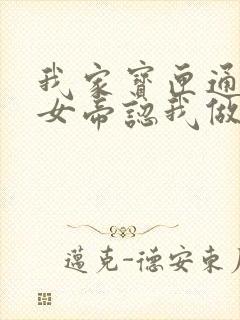 我家寶匣通
女帝認我做
邁克-德安東